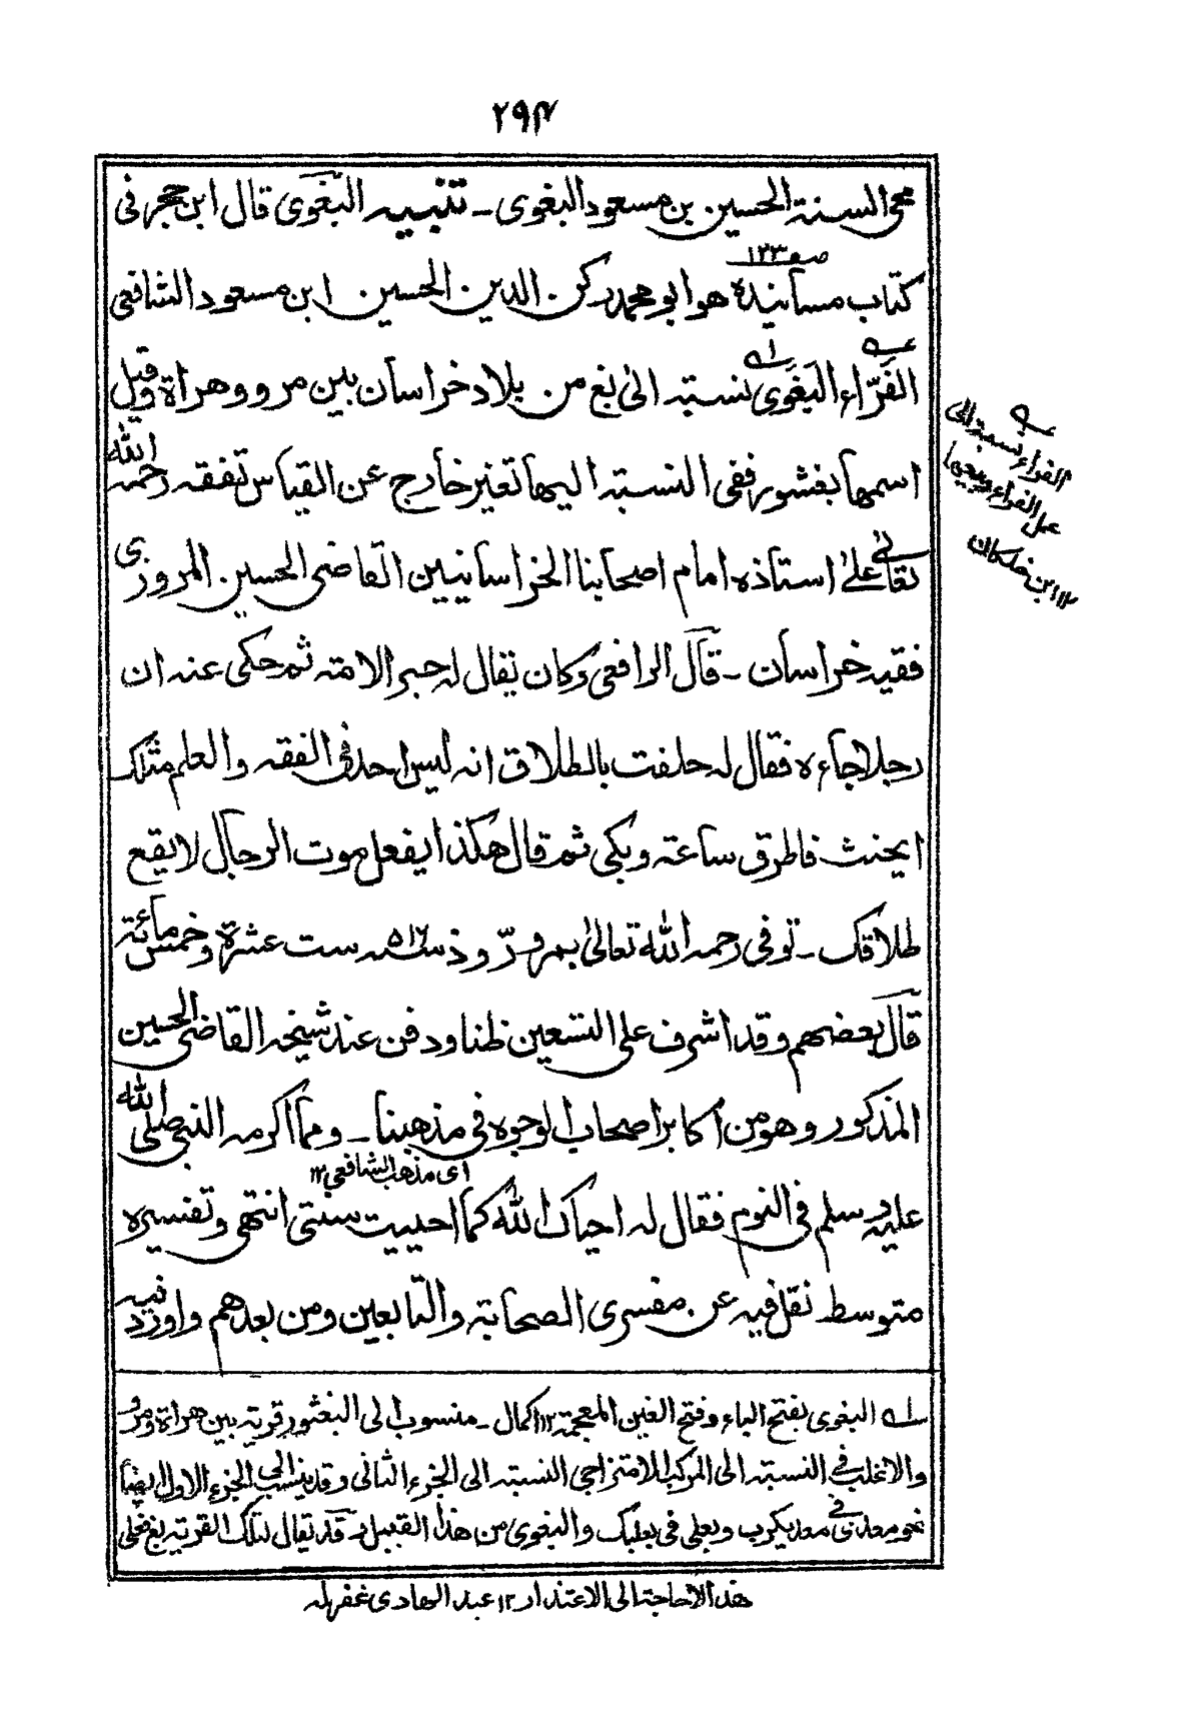 ۲۹۴
محی السنة الحسین بن مسعود البغوی ـ تنبیہ البَّغَوی قال ابن حجر فی
صـ۱۲۳
کتاب مسانیدہ هو ابو محمد رکن الدین الحسین ابن مسعود الشافعی
الفَرّاء البَغَوی نسبتہ الیٰ بغ من بلاد خراسان بین مرو وهراة وقیل
اسمها بغشور ففی النسبتہ الیها تغیر خارج عن القیاس تفقہ رحمہ اللہ
تعالیٰ علیٰ استاذہ امام اصحابنا الخراسانیین القاضی الحسین المروزی
فقیہ خراسان ـ قال الرافعی وکان یقال لہ حبر الامتہ ثم حکی عنہ ان
رجلا جاءہ فقال لہ حلفت بالطلاق انہ لیس احد فی الفقہ والعلم مثلک
ایحنث فاطرق ساعتہ وبکی ثم قال هکذا یفعل موت الرجال لا یقع
طلاقک ـ توفی رحمہ اللہ تعالیٰ بمروّروذ سنہ ۵۱۶ ست عشرة وخمس مائة
قال بعضهم وقد اشرف علی التسعین ظنا ودفن عند شیخہ القاضی الحسین
المذکور وهو من اکابر اصحاب الوجوہ فی مذهبنا ـ ومما اکرمہ النبی صلی اللہ
ای مذهب الشافعی ۱۲
علیہ وسلم فی النوم فقال لہ احیاک اللہ کما احییت سنتی انتهی وتفسیرہ
متوسط نقل فیہ عن مفسری الصحابة والتابعین ومن بعدهم واورد فیہ
الفراء نسبة الی
عمل الفراء وبیعها
۱۲ ابن خلکان
لہ البغوی بفتح الباء وفتح الغین المعجمة ۱۲ اکمال ـ منسوب الی البغشور قریة بین هراة ومرو
والاغلب فی النسبتہ الی المرکب الامتزاجی النسبتہ الی الجزء الثانی وقد ینسب الی الجزء الاول ایضا
نحو معدی فی معدیکرب وبعلی فی بعلبک والبغوی من هذا القبیل وقد یقال لتلک القریة بغ فعلی
هذا لا حاجة الی الاعتذار ۱۲ عبد الهادی غفر لہ